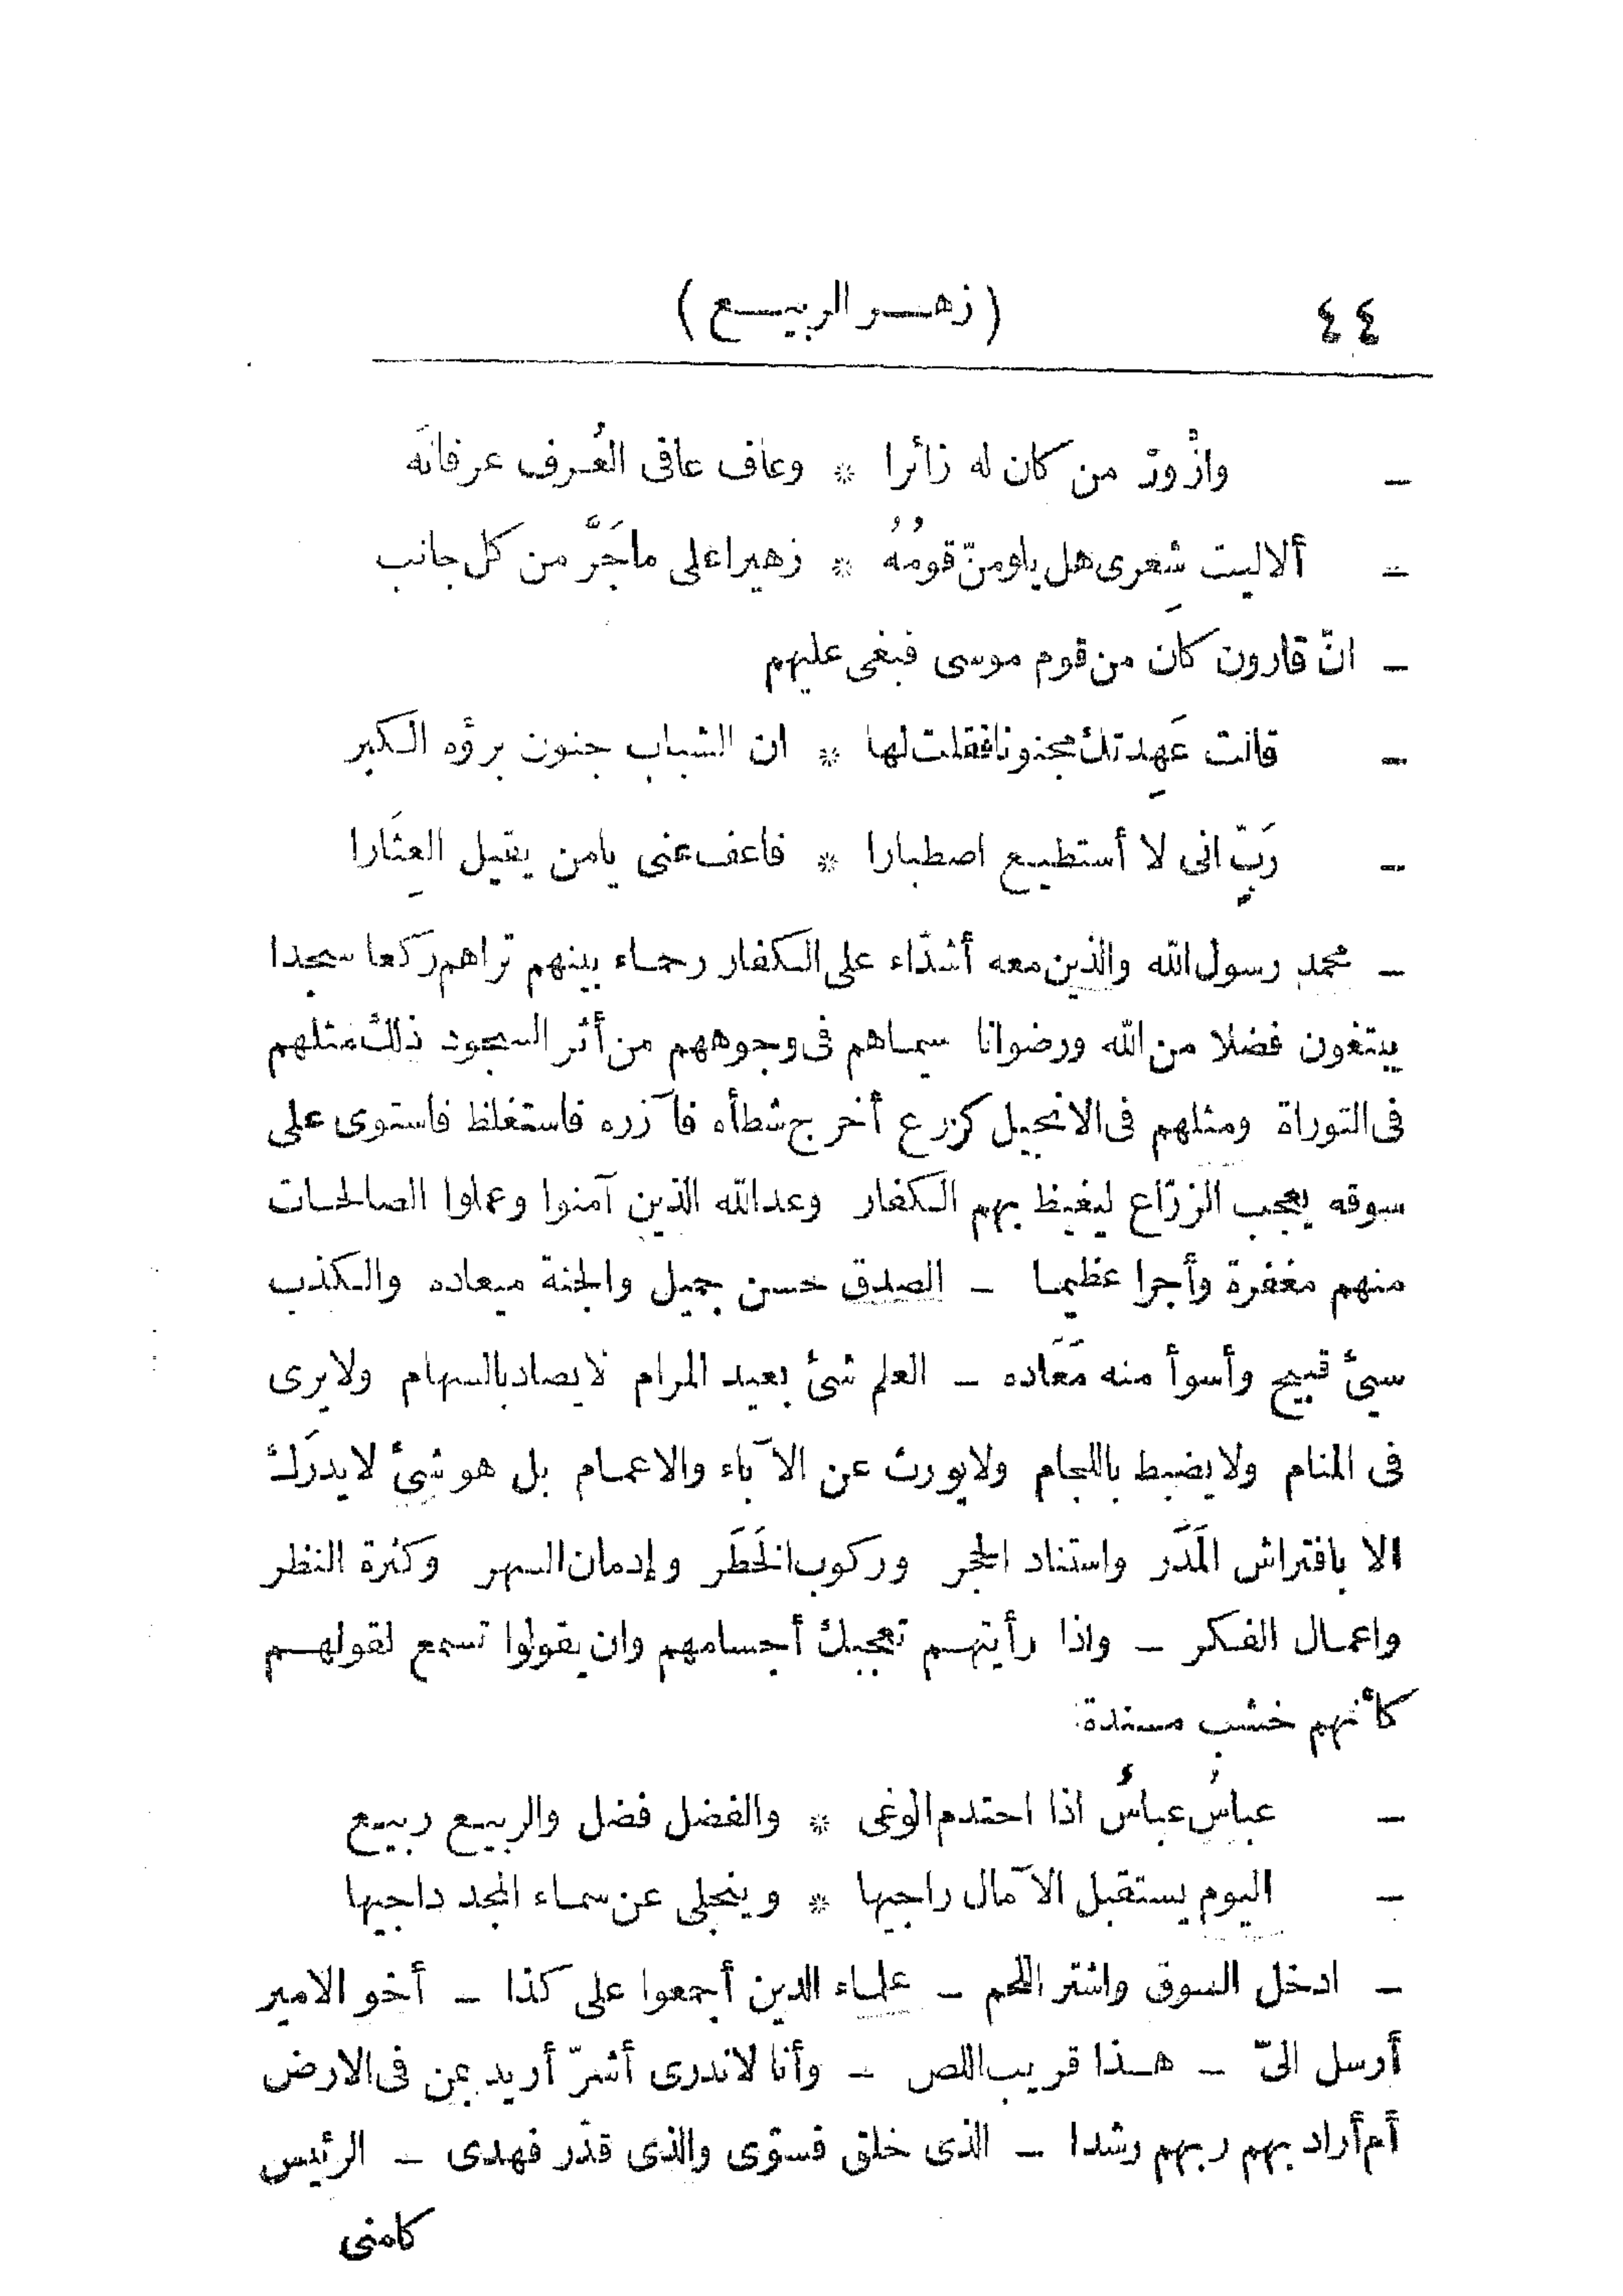 ٤٤ (زهر الربيع)
— وازْورّ من كان له زائرا * وعاف عافى العُرف عرفانَه
— ألا ليت شِعرى هل يلومنّ قومُهُ * زهيرا على ما جَرَّ من كل جانب
— انّ قارون كان من قوم موسى فبغى عليهم
— قالت عَهِدتك مجنونا فقلت لها * ان الشباب جنون برؤه الكبر
— رَبِّ انى لا أستطيع اصطبارا * فاعف عنى يا من يقيل العِثَارا
— محمد رسول الله والذين معه أشدّاء على الكفار رحماء بينهم تراهم ركعا سجدا
يبتغون فضلا من الله ورضوانا سيماهم فى وجوههم من أثر السجود ذلك مثلهم
فى التوراة ومثلهم فى الانجيل كزرع أخرج شطأه فآزره فاستغلظ فاستوى على
سوقه يعجب الزرّاع ليغيظ بهم الكفار وعد الله الذين آمنوا وعملوا الصالحات
منهم مغفرة وأجرا عظيما — الصدق حسن جميل والجنة ميعاده والكذب
سيئ قبيح وأسوأ منه مَعَاده — العلم شئ بعيد المرام لا يصاد بالسهام ولا يرى
فى المنام ولا يضبط باللجام ولا يورث عن الآباء والاعمام بل هو شئ لا يدرَك
الا بافتراش المَدَر واستناد الحجر وركوب الخَطَر وإدمان السهر وكثرة النظر
واعمال الفكر — واذا رأيتهم تعجبك أجسامهم وان يقولوا تسمع لقولهم
كأنهم خشب مسندة
— عباسُ عباسٌ اذا احتدم الوغى * والفضل فضل والربيع ربيع
— اليوم يستقبل الآمال راجيها * وينجلى عن سماء المجد داجيها
— ادخل السوق واشتر اللحم — علماء الدين أجمعوا على كذا — أخو الامير
أرسل الىّ — هذا قريب اللص — وأنا لا ندرى أشرّ أريد بمن فى الارض
أم أراد بهم ربهم رشدا — الذى خلق فسوّى والذى قدّر فهدى — الرئيس
كامنى